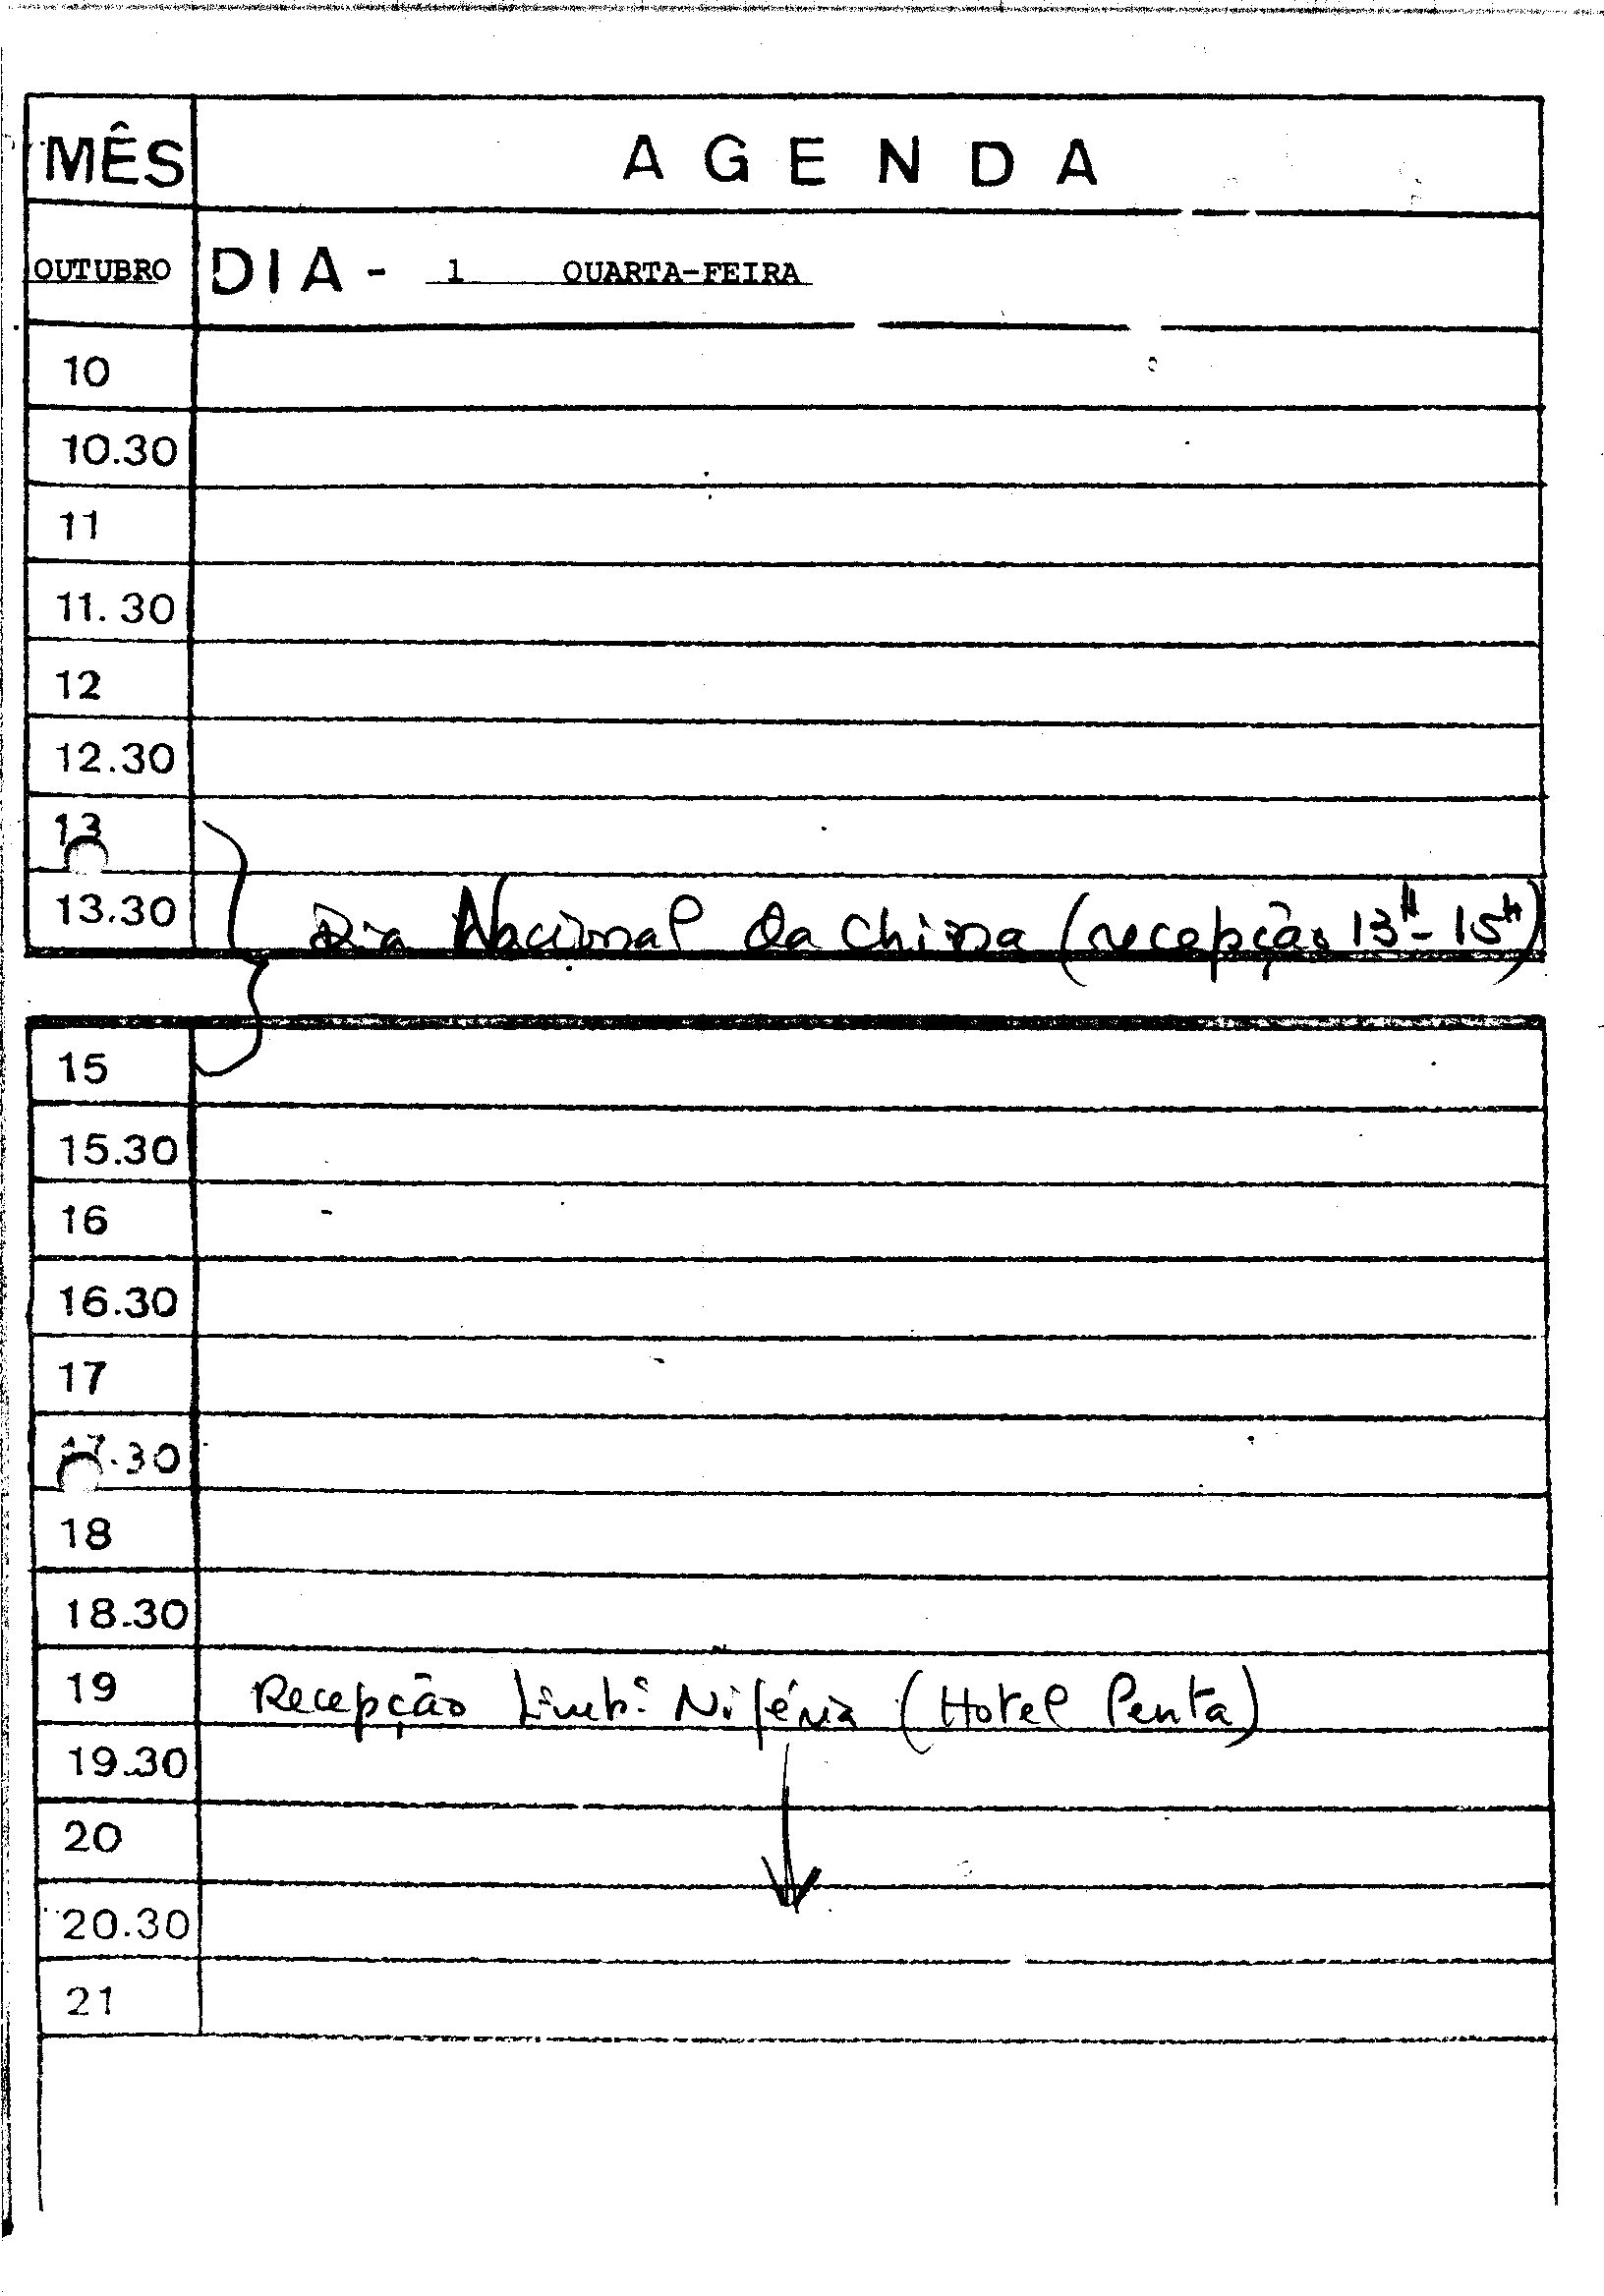 MÊS A G E N D A
OUTUBRO DIA - 1 QUARTA-FEIRA
10
10.30
11
11.30
12
12.30
13
13.30 Dia Nacional da China (recepção 13H - 15H)
15
15.30
16
16.30
17
17.30
18
18.30
19 Recepção Nigéria (Hotel Penta)
19.30
20
20.30
21